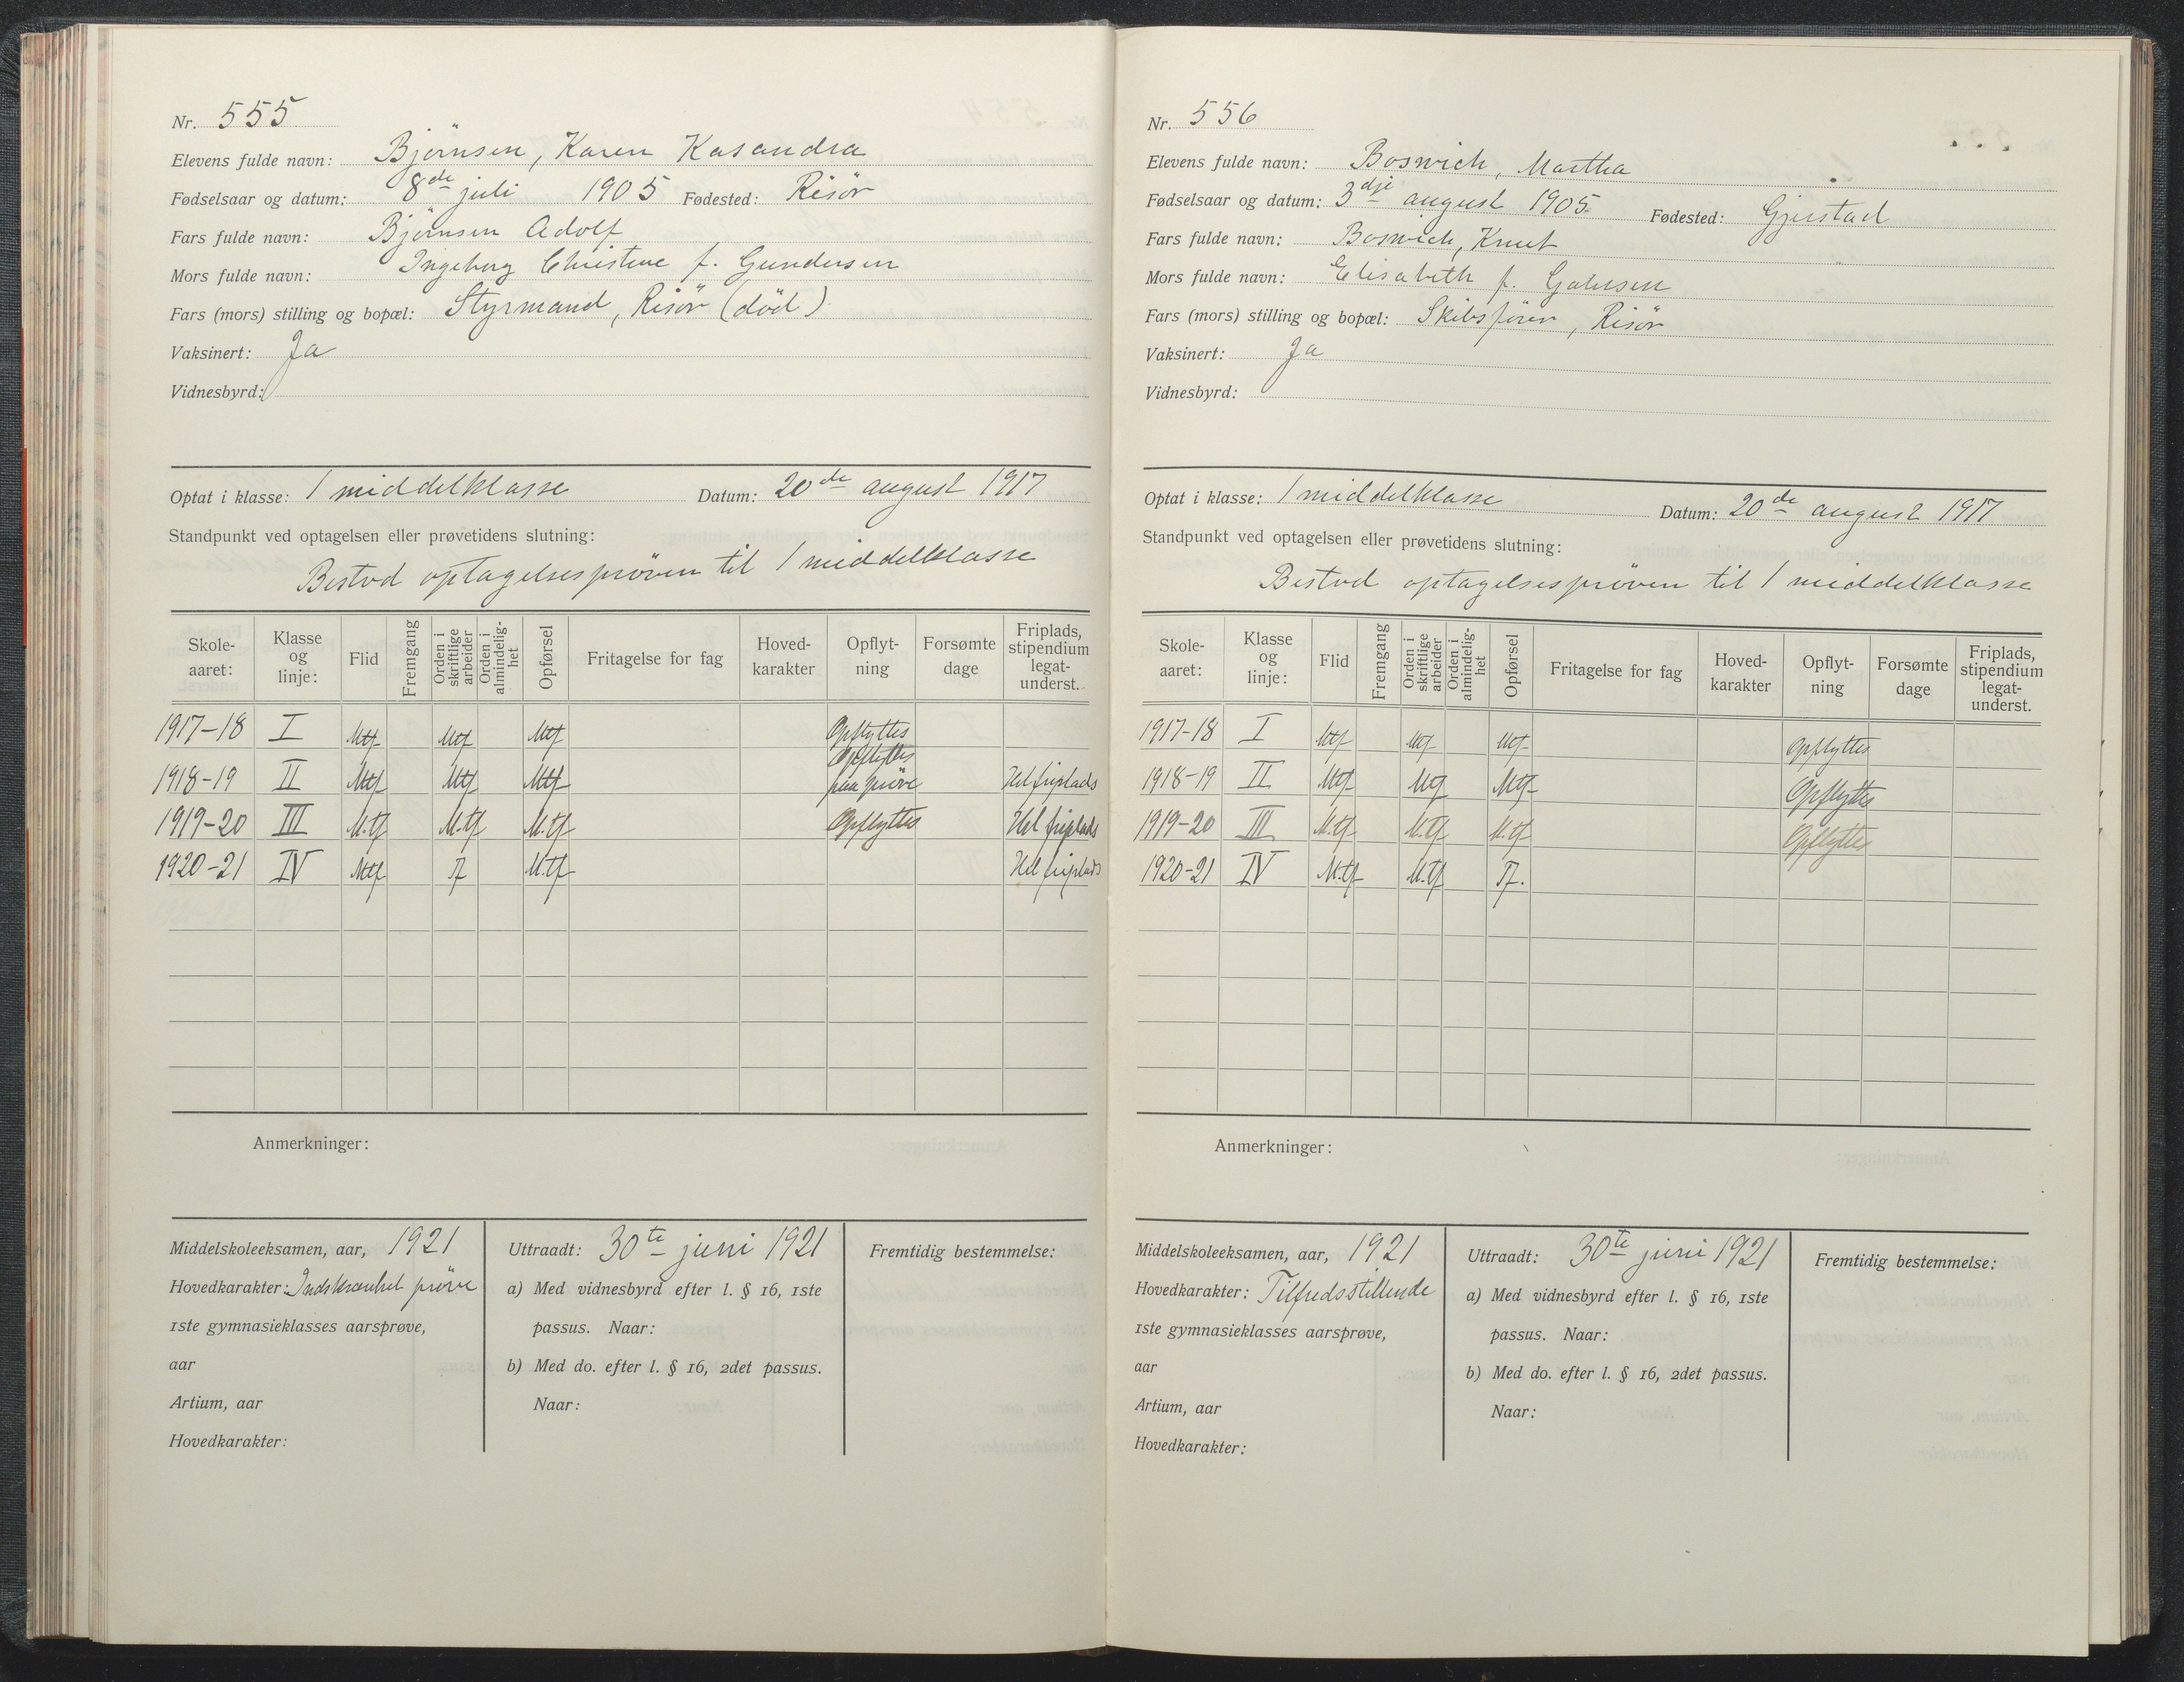 Nr. 555
Elevens fulde navn: Bjørnsen, Karen Kasandra
Fødselsaar og datum: 8de juli 1905 Fødested: Risör
Fars fulde navn: Bjørnsen Adolf
Mors fulde navn: Ingeborg Christine f. Gundersen
Fars (mors) stilling og bopæl: Styrmand, Risör (död)
Vaksinert: Ja
Vidnesbyrd:
Optat i klasse: 1 middelklasse Datum: 20de august 1917
Standpunkt ved optagelsen eller prøvetidens slutning:
Bestod optagelsespröven til 1 middelklasse
Skole-aaret: Klasse og linje: Flid Fremgang Orden i skriftlige arbeider Orden i almindelig-het Opførsel Fritagelse for fag Hoved-karakter Opflyt-ning Forsømte dage Friplads, stipendium legat-underst.
1917-18 I Mtf Mtf Mtf Opflyttes
1918-19 II Mtf Mtf Mtf Opflyttes paa pröve Hel friplads
1919-20 III M.tf M.tf M.tf Opflyttes Hel friplads
1920-21 IV Mtf Tf M.tf Hel friplads
Anmerkninger:
Middelskoleeksamen, aar, 1921
Hovedkarakter: Indskrænket pröve
1ste gymnasieklasses aarsprøve,
aar
Artium, aar
Hovedkarakter:
Uttraadt: 30te juni 1921
a) Med vidnesbyrd efter l. § 16, 1ste
passus. Naar:
b) Med do. efter l. § 16, 2det passus.
Naar:
Fremtidig bestemmelse:
Nr. 556
Elevens fulde navn: Boswich, Martha
Fødselsaar og datum: 3dje august 1905 Fødested: Gjerstad
Fars fulde navn: Boswich, Knut
Mors fulde navn: Elisabeth f.
Fars (mors) stilling og bopæl: Skibsförer, Risör
Vaksinert: Ja
Vidnesbyrd:
Optat i klasse: 1 middelklasse Datum: 20de august 1917
Standpunkt ved optagelsen eller prøvetidens slutning:
Bestod optagelsespröven til 1 middelklasse
Skole-aaret: Klasse og linje: Flid Fremgang Orden i skriftlige arbeider Orden i almindelig-het Opførsel Fritagelse for fag Hoved-karakter Opflyt-ning Forsømte dage Friplads, stipendium legat-underst.
1917-18 I Mtf Mtf Mtf Opflyttes
1918-19 II Mtf Mtf Mtf Opflyttes
1919-20 III M.tf M.tf M.tf Opflyttes
1920-21 IV M.tf M.tf Tf.
Anmerkninger:
Middelskoleeksamen, aar, 1921
Hovedkarakter: Tilfredsstillende
1ste gymnasieklasses aarsprøve,
aar
Artium, aar
Hovedkarakter:
Uttraadt: 30te juni 1921
a) Med vidnesbyrd efter l. § 16, 1ste
passus. Naar:
b) Med do. efter l. § 16, 2det passus.
Naar:
Fremtidig bestemmelse: